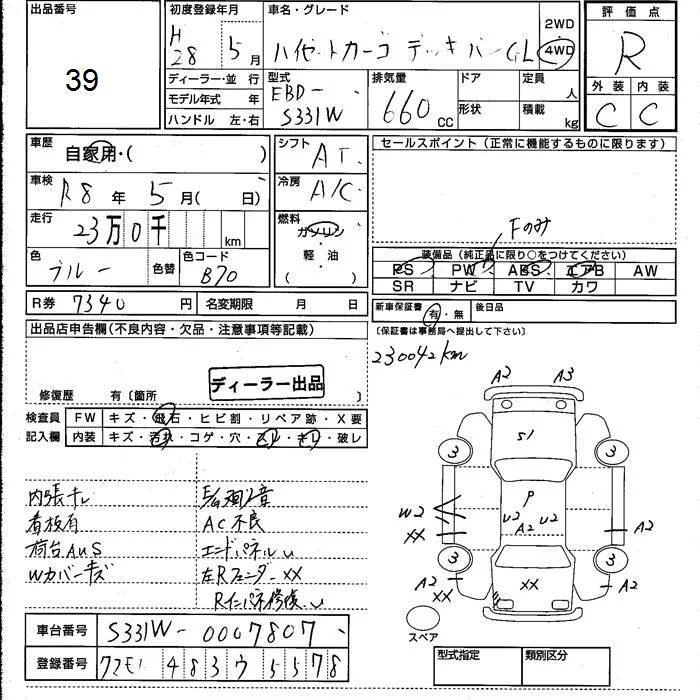 出品番号
39
初度登録年月
H28 5月
車名・グレード
ハイゼットカーゴ デッキバン GL
2WD
4WD
評価点
R
外装 内装
C C
ディーラー・並 行
モデル年式 年
ハンドル 左・右
型式
EBD-
S331W
排気量
660 cc
ドア
形状
定員
人
積載
kg
車歴
自家用・( )
シフト
AT
セールスポイント(正常に機能するものに限ります)
車検
R8年 5月( 日)
冷房
A/C
走行
23万0千 km
燃料
ガソリン
軽・油
( )
Fのみ
色
ブルー
色替
色コード
B70
装備品(純正品に限り○をつけてください)
PS PW ABS エアB AW
SR ナビ TV カワ
R券 7340円
名変期限 月 日
新車保証書 有・無
後日品
(保証書は事務局へ提出して下さい)
出品店申告欄(不良内容・欠品・注意事項等記載)
230042km
ディーラー出品
修復歴 有〔箇所 〕
検査員
記入欄
FW キズ・飛石・ヒビ割・リペア跡・X要
内装 キズ・汚れ・コゲ・穴・スレ・キレ・破レ
A2 A3
S1
3 3
P
U2 U2
A2
W2
XX
A2
3 3
A2
XX
XX
A2
スペア
看板有
AC不良
荷台AUS
エンドパネルU
Wカバーキズ
左Rフェンダー XX
車台番号 S331W-0007807
登録番号 483ウ5578
型式指定 類別区分